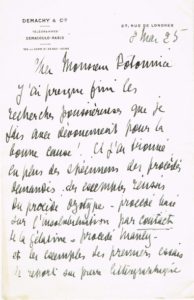 DEMACHY & Cie
TÉLÉGRAMMES
DEMACHOULD-PARIS
27, RUE DE LONDRES
2 Mai 25
Cher Monsieur Potonniée
J'ai presque fini les
recherches poussiéreuses que je
fais avec dévouement pour la
bonne cause! Et j'ai trouvé
en plus de spécimens des procédés
demandés des exemples
du procédé Ozotype - procédé basé
sur l'insolubilisation par contact
de la gélatine - procédé Manly -
et les exemples des premiers essais
de report sur pierre lithographique